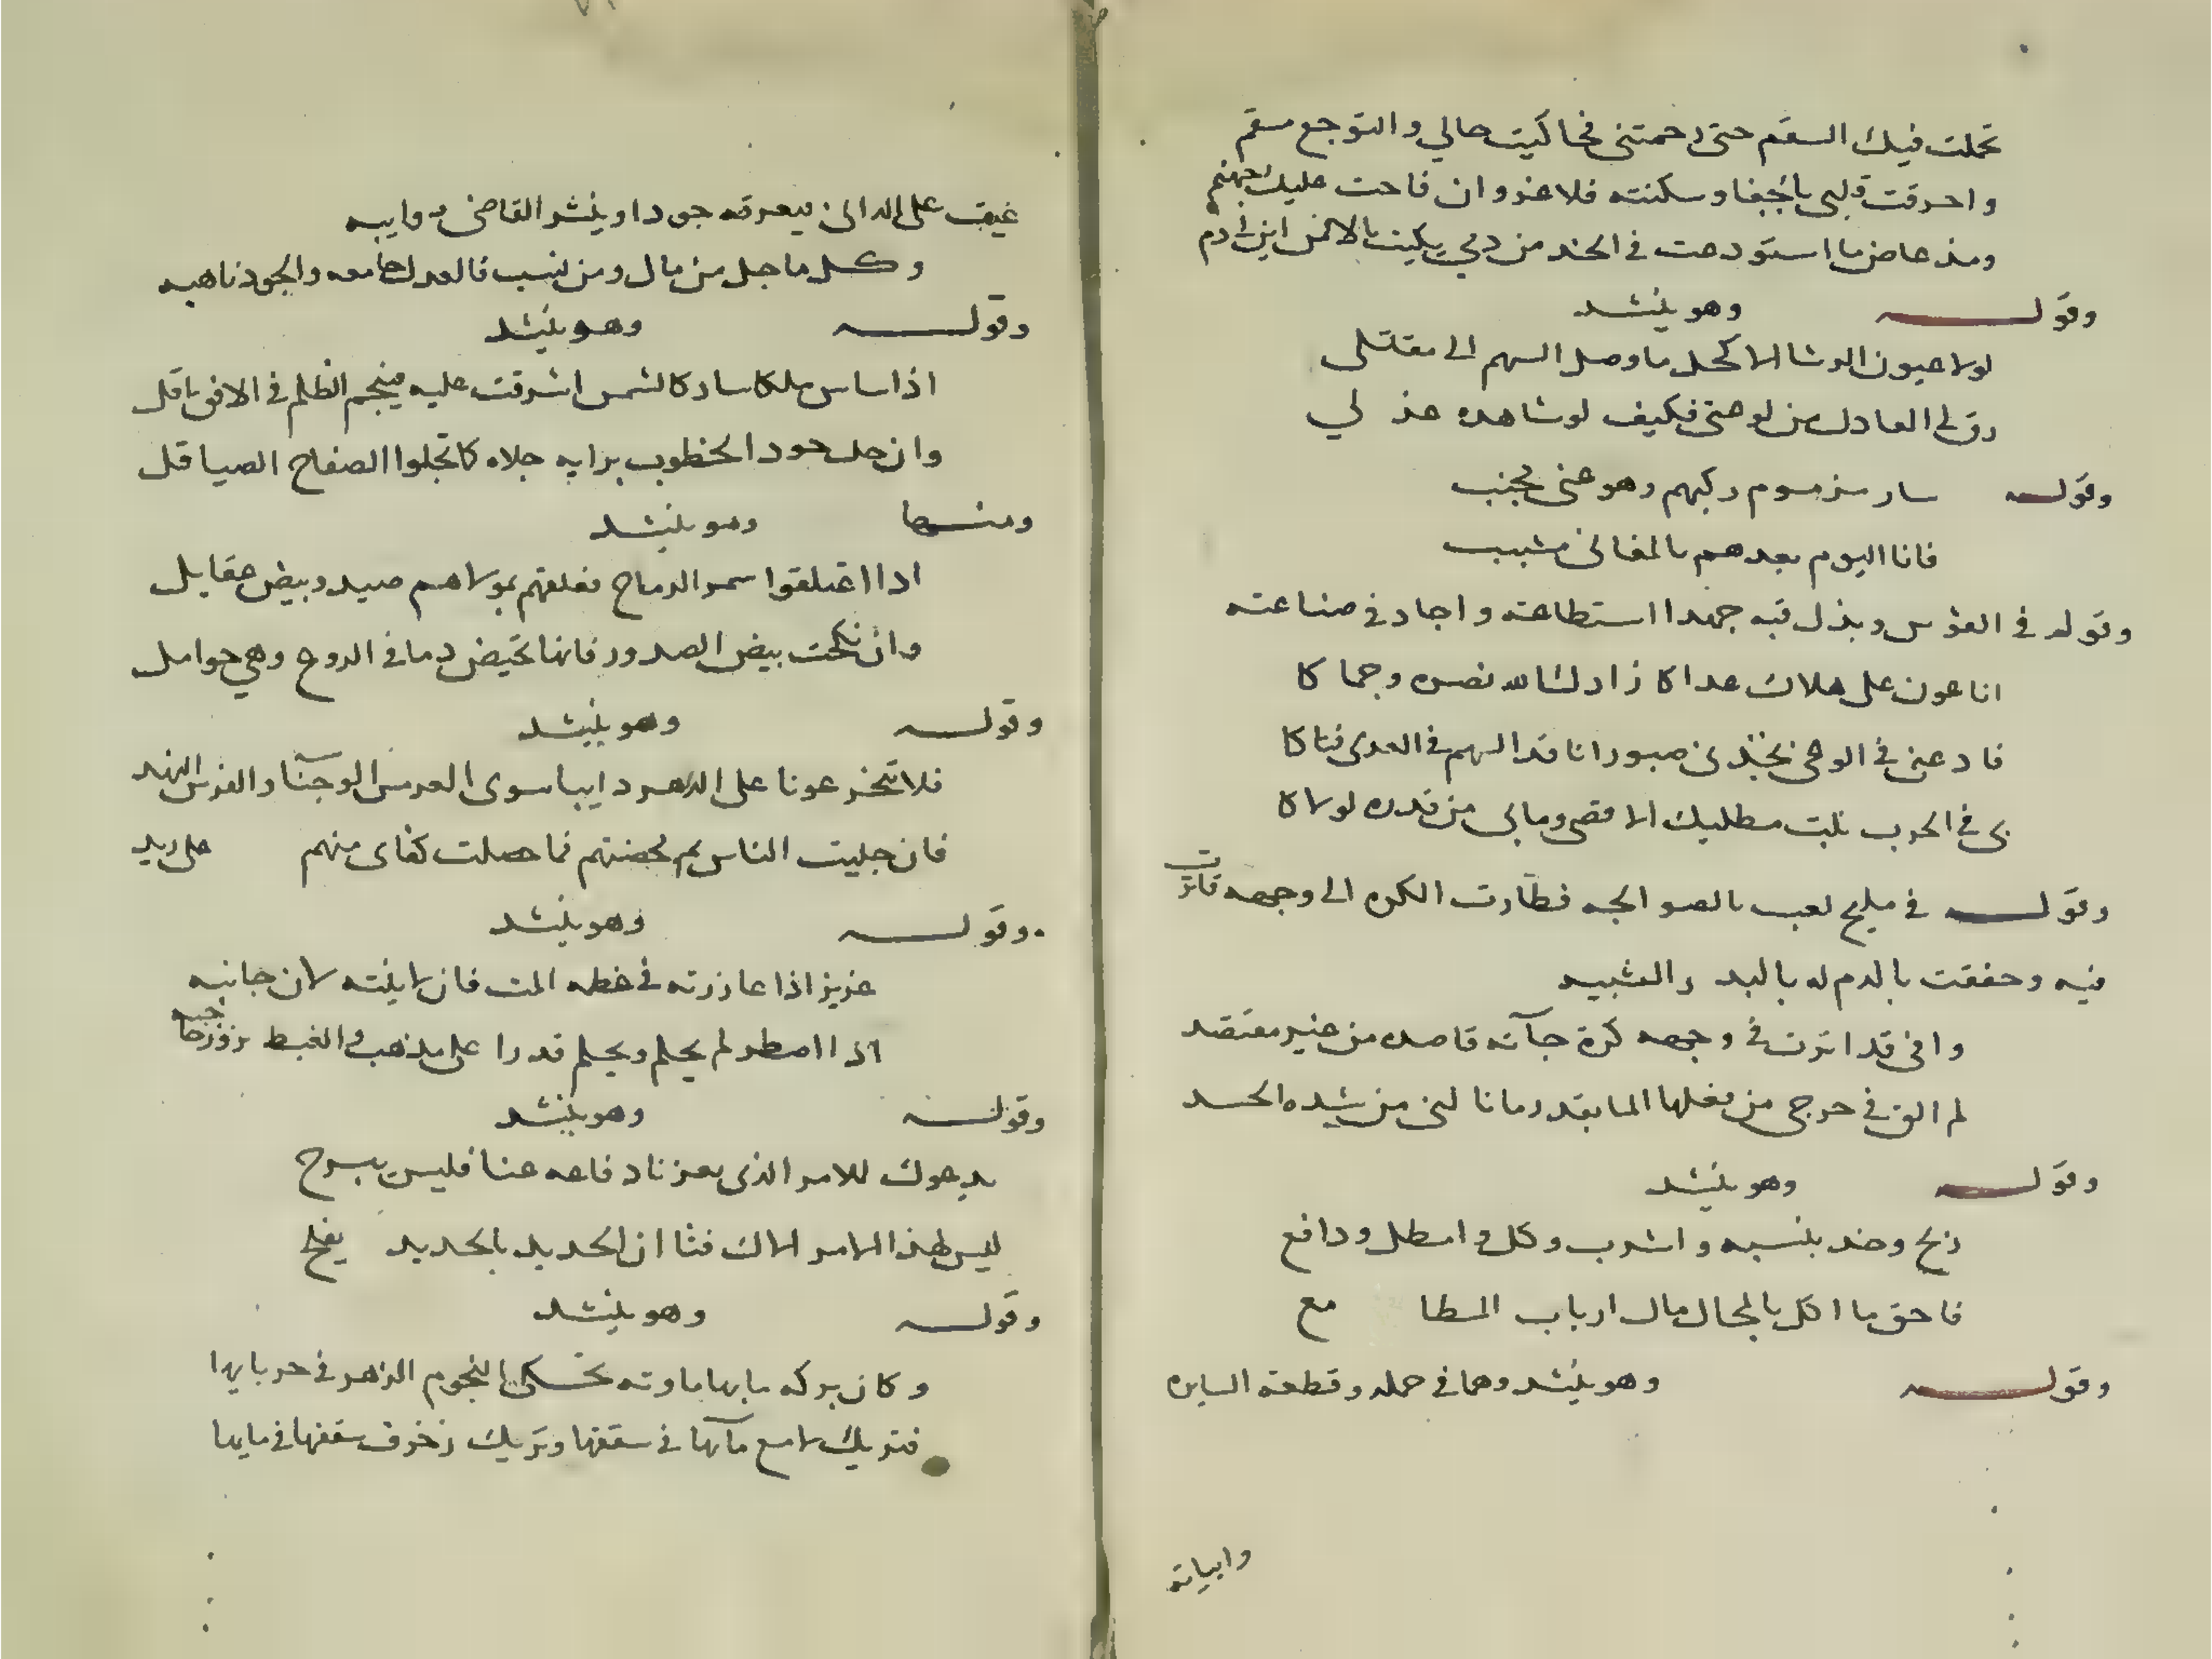 تحملت فيك السقم حتى رحمتنى فحاكيت حالي والتوجع سقم
واحرقت قلبى بالجفا وسكنته فلا غرو ان فاحت عليك جهنم
ومذ غاض ما استودعت في الخد من دمي بكيت بالاثمن
وقوله وهو ينشد
لولا عيون الرشا الاكحل ما وصل السهم الى مقتلى
رق لى العاذل من لوعتى فكيف لو شاهده عذ لي
وقوله سار من موم ركبهم وهو عنى مجنب
فانا اليوم بعدهم بالمغانى مشبب
وقوله في القوس وبذل فيه جهدا استطاعته واجاد في صناعته
انا عون على هلاك عداكا زادك الله نصره وحماكا
فادعنى في الوغى تجدنى صبورا نافد السهم في العدى فتاكا
بى في الحرب نلت مطلبك الاقصى ومالى من قدره لولاكا
وقوله في مليح لعب بالصوالجه فطارت الكره الى وجهه فاثرت
فيه وحققت بالدم له بالبد ر التشبيه
وافى قد اثرت في وجهه كرة جآته قاصده من غير معتقد
لم الق في حرجى من فعلها الما بقدر ما نالنى من شده الحسد
وقوله وهو ينشد
زلح وخد بلنسيه واشرب وكل وامطل ودافع
فاحق ما اكل بالمحال مال ارباب المطا مع
وقوله وهو ينشد وهما في حمله وقطعته السايره
وابياته
غيث على الدانى فيعرقه جودا وينشر القاضى
وكل ما جل من مال ومن نسب فالعدل جامعه والجود ناهبه
وقوله وهو ينشد
اذا ساس ملكا ساد كالشمس اشرقت عليه فنجم الظلم في الافق افل
وان حل حود الخطوب برايه جلاه كما تجلوا الصفاح الصياقل
ومنها وهو ينشد
اذا اعتلقوا سمر الرماح فعلقهم بمولاهم صيد وبيض عقايل
وان نكحت بيض الصدور فانها تحيض دما في الروع وهي حوامل
وقوله وهو ينشد
فلا تتخذ عونا على الدهر دايبا سوى العرمس الوجنآ والفرس النهد
فان جليت الناس ثم محضتهم فما حصلت كفاى منهم على يد
وقوله وهو ينشد
عزيز اذا عازرته في خطه المت فان لاينته لان جانبه
اذا اضطر لم يحلم ويحلم قدرا على مذهب في الغيظ
وقوله وهو ينشد
يدعوك للامر الذى يعزنا دفاعه عنا فليس يبرح
ليس لهذا الامر الاك فتا ان الحديد بالحديد يفلح
وقوله وهو ينشد
وكان بركه مابها ماوته تحكى النجوم الزهر في حربايها
فتريك لامع مآئها في سقفها وتريك زخرف سقفها في مايها